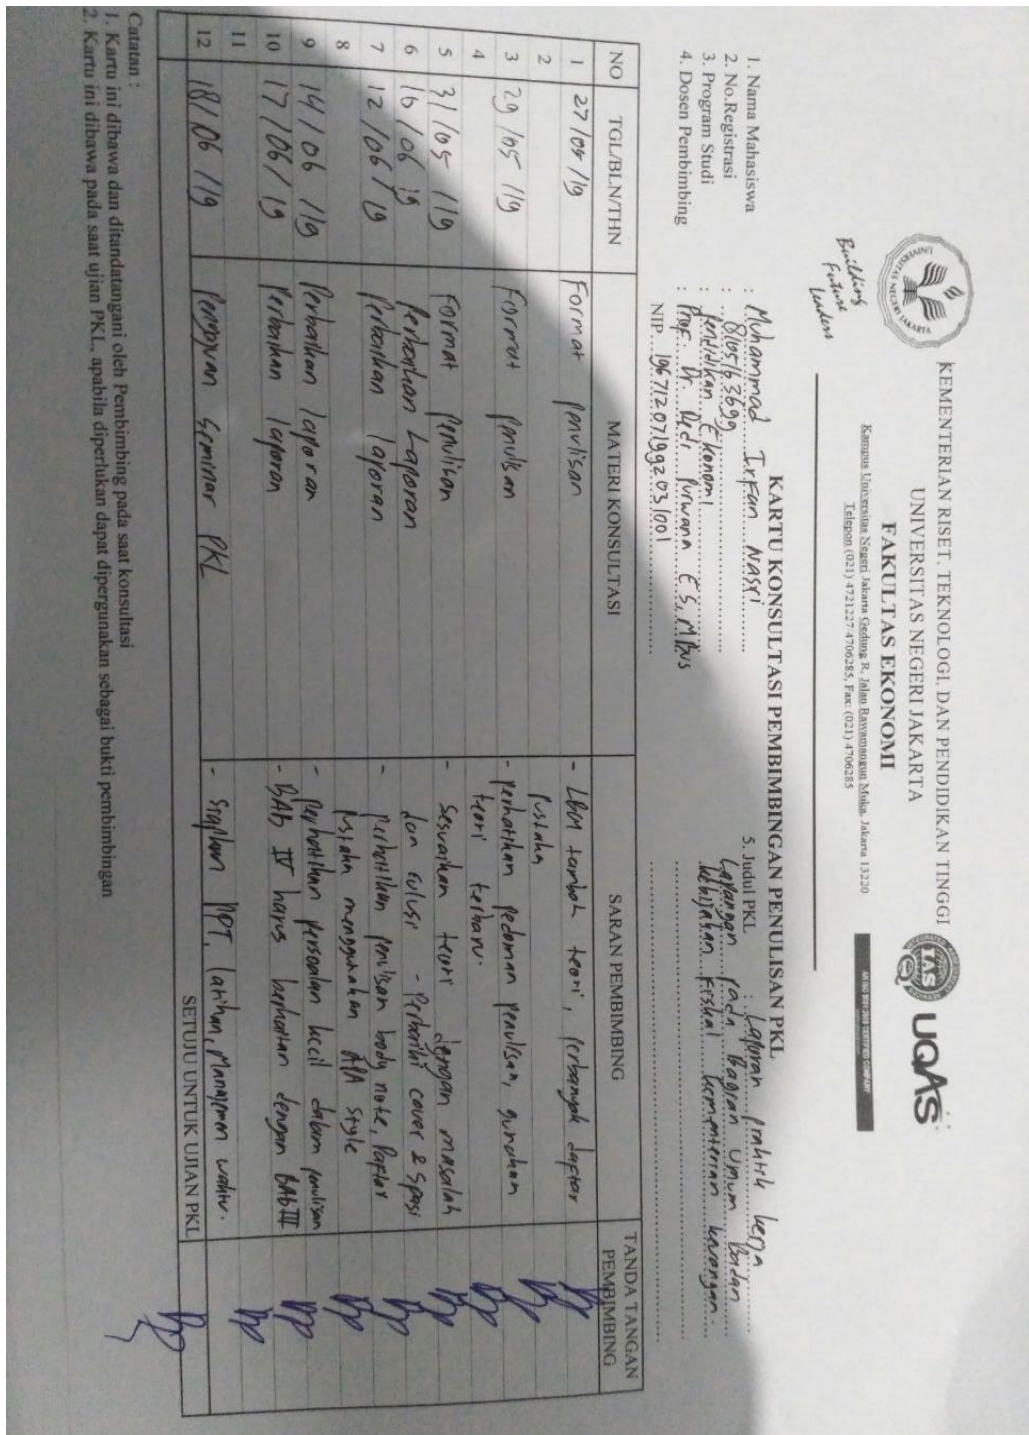 KEMENTERIAN RISET, TEKNOLOGI, DAN PENDIDIKAN TINGGI
UNIVERSITAS NEGERI JAKARTA
FAKULTAS EKONOMI
Kampus Universitas Negeri Jakarta Gedung R, Jalan Rawamangun Muka, Jakarta 13220
Telepon (021) 4721227 4706285, Fax: (021) 4706285
UNIVERSITAS NEGERI JAKARTA
Building
Future
Leaders
TAS
UQAS
KARTU KONSULTASI PEMBIMBINGAN PENULISAN PKL
1. Nama Mahasiswa : Muhammad Irfan Nasri
2. No.Registrasi : 8105163699
3. Program Studi : Pendidikan Ekonomi
4. Dosen Pembimbing : Prof. Dr. Dedi Purwana E.S, M.Bus
NIP. 196712071992031001
5. Judul PKL : Laporan Praktik kerja
Lapangan pada Bagian Umum Badan
Kebijakan Fiskal kementerian keuangan.
NO TGL/BLN/THN MATERI KONSULTASI SARAN PEMBIMBING TANDA TANGAN PEMBIMBING
1 27/05/19 Format Penulisan - LBM tambah teori, perbanyak daftar
2 Pustaka
3 29/05/19 Format Penulisan - Perhatikan pedoman penulisan, gunakan
4 teori terbaru.
5 31/05/19 Format Penulisan - Sesuaikan teori dengan masalah
6 10/06/19 Perbaikan Laporan dan solusi - Perbaiki cover & spasi
7 12/06/19 Perbaikan laporan - Perhatikan penulisan body note, Daftar
8 Pustaka menggunakan APA style
9 14/06/19 Perbaikan laporan - Perhatikan persoalan kecil dalam penulisan
10 17/06/19 Perbaikan laporan - BAb IV harus berkaitan dengan BAb III
11
12 18/06/19 Pengajuan Seminar PKL - Siapkan PPT, latihan, Manajemen waktu.
SETUJU UNTUK UJIAN PKL
Catatan :
1. Kartu ini dibawa dan ditandatangani oleh Pembimbing pada saat konsultasi
2. Kartu ini dibawa pada saat ujian PKL, apabila diperlukan dapat dipergunakan sebagai bukti pembimbingan